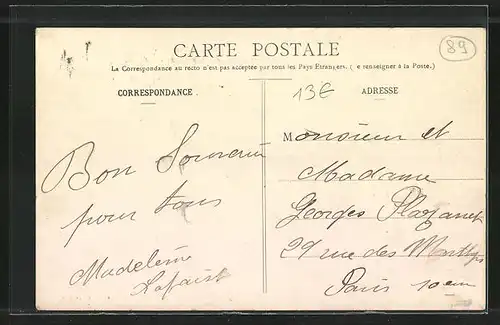 CARTE POSTALE
89
La Correspondance au recto n'est pas acceptée par tous les Pays Etrangers. ( e renseigner à la Poste.)
CORRESPONDANCE
13€
ADRESSE
Bon Souvenir
pour tous
Madeleine
Monsieur et
Madame
Georges Plazanet
29 rue des
Paris 10em